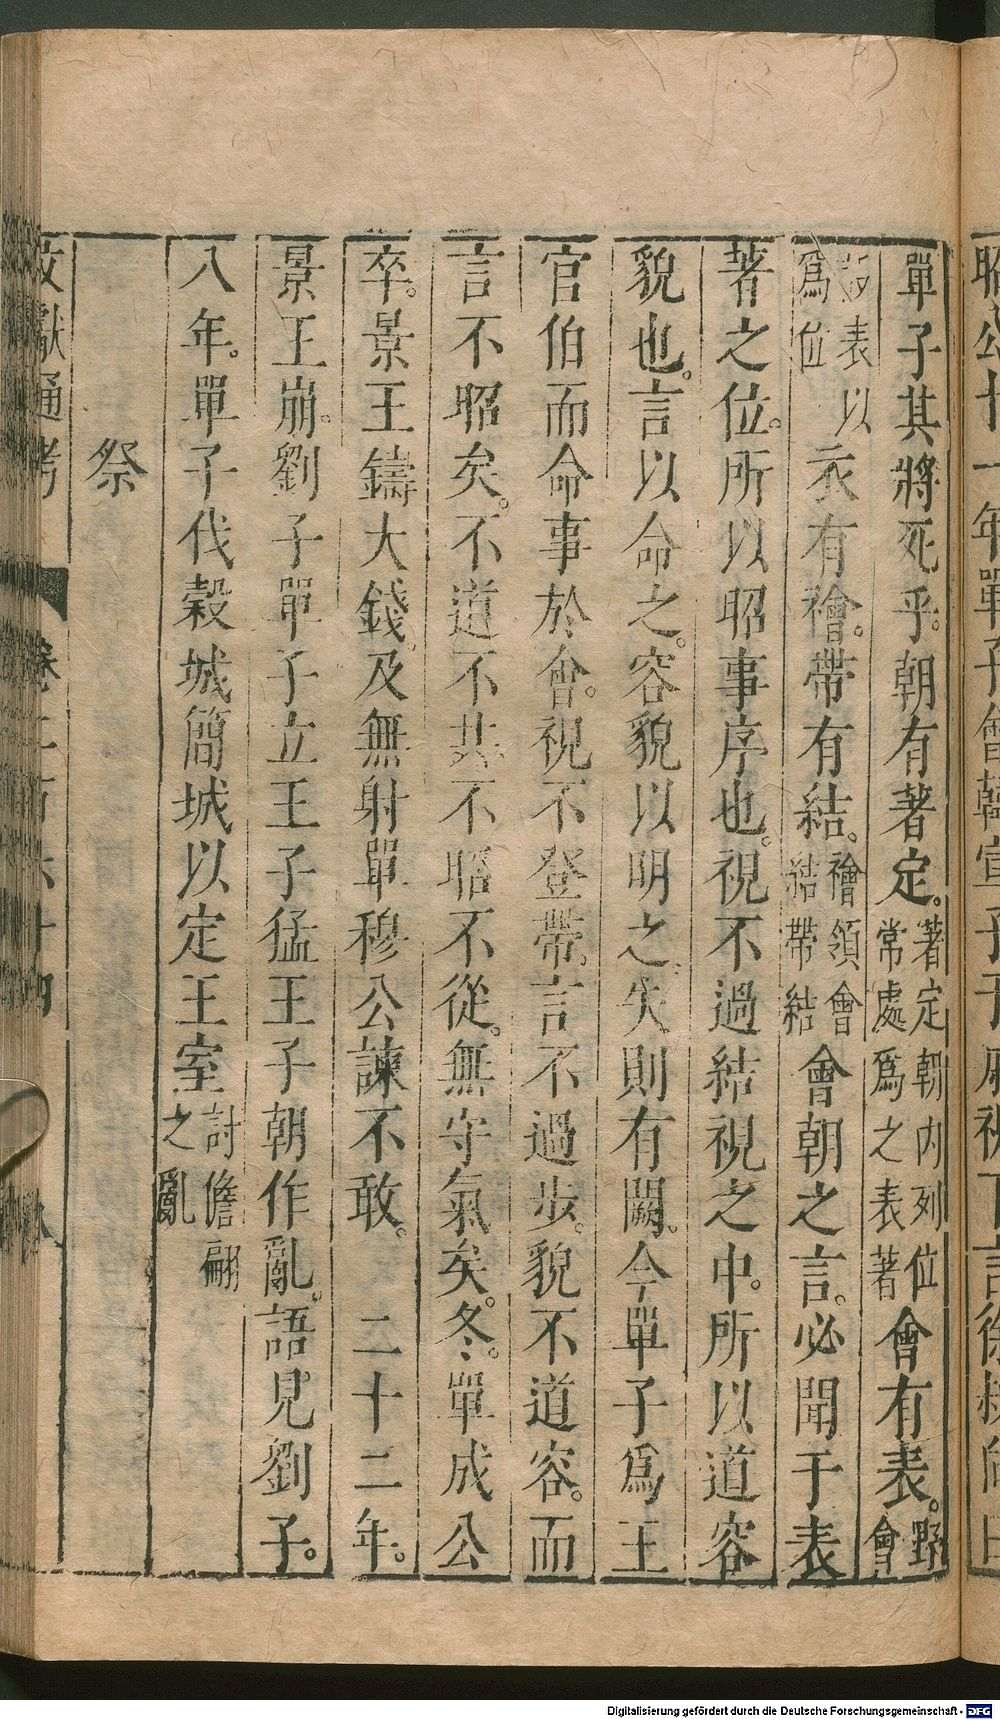 單子其將死乎。朝有著定。著定朝内列位常處爲之表著會有表。野會
設表以爲位衣有禬。帶有結。禬領會結帶結會朝之言。必聞于表
著之位。所以昭事序也。視不過結視之中。所以道容
貌也。言以命之。容貌以明之。失則有闕。今單子爲王
官伯而命事於會。視不登帶。言不過步。貌不道容。而
言不昭矣。不道不共。不昭不從。無守氣矣。冬。單成公
卒。景王鑄大錢。及無射單穆公諫不敢。 二十二年。
景王崩。劉子單子立王子猛王子朝作亂。語見劉子。
八年。單子伐穀城簡城以定王室討儋翩之亂
祭
文獻通考 卷二百六十四 八
Digitalisierung gefördert durch die Deutsche Forschungsgemeinschaft - DFG